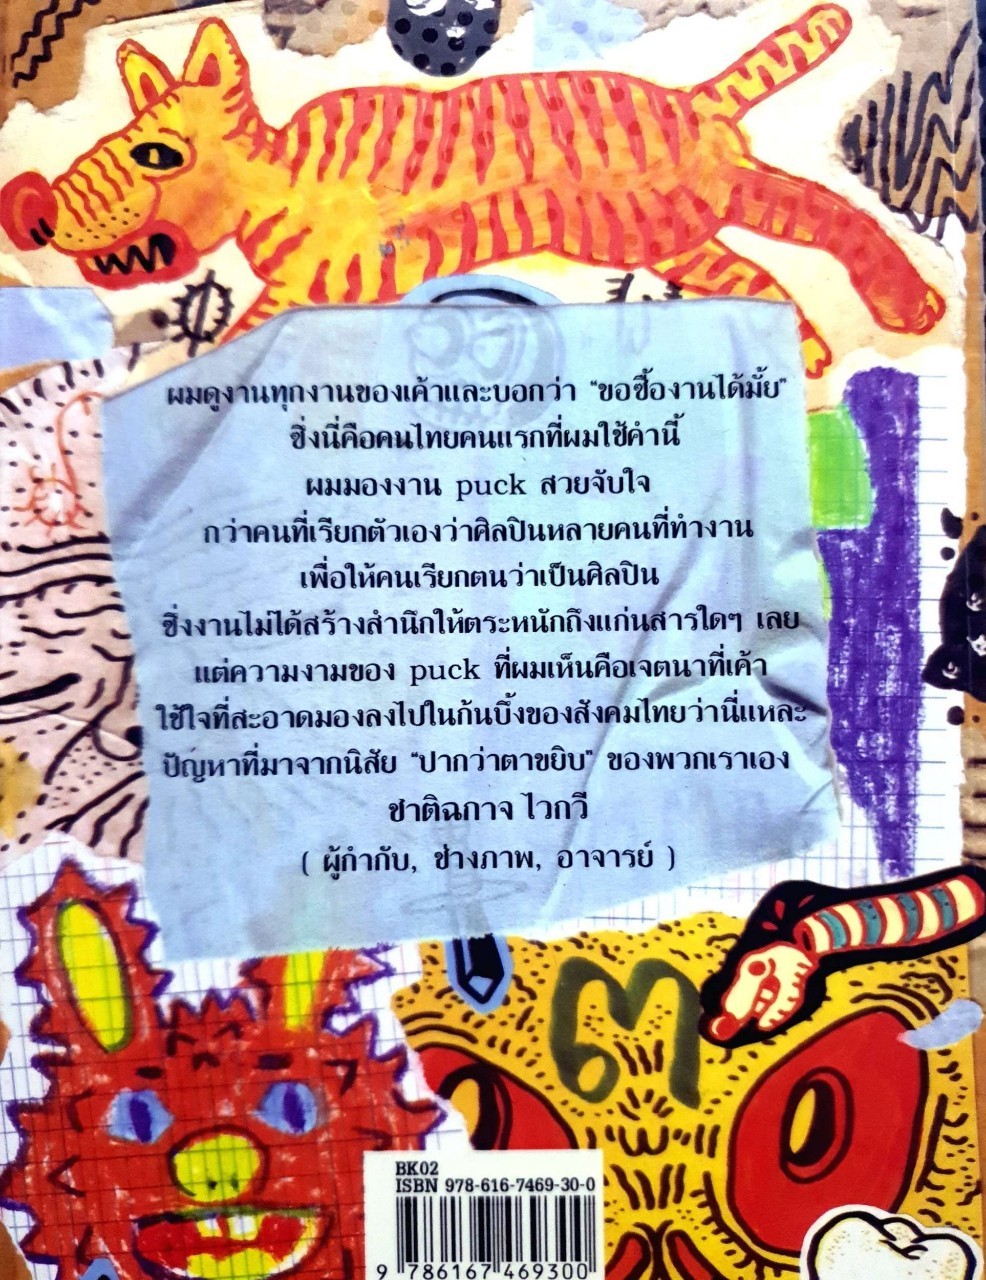 ผมดูงานทุกงานของเค้าและบอกว่า “ขอซื้องานได้มั้ย”
ซึ่งนี่คือคนไทยคนแรกที่ผมใช้คำนี้
ผมมองงาน puck สวยจับใจ
กว่าคนที่เรียกตัวเองว่าศิลปินหลายคนที่ทำงาน
เพื่อให้คนเรียกตนว่าเป็นศิลปิน
ซึ่งงานไม่ได้สร้างสำนึกให้ตระหนักถึงแก่นสารใดๆ เลย
แต่ความงามของ puck ที่ผมเห็นคือเจตนาที่เค้า
ใช้ใจที่สะอาดมองลงไปในก้นบึ้งของสังคมไทยว่านี่แหละ
ปัญหาที่มาจากนิสัย “ปากว่าตาขยิบ” ของพวกเราเอง
ชาติฉกาจ ไวกวี
( ผู้กำกับ, ช่างภาพ, อาจารย์ )
ต
BK02
ISBN 978-616-7469-30-0
9 786167 469300